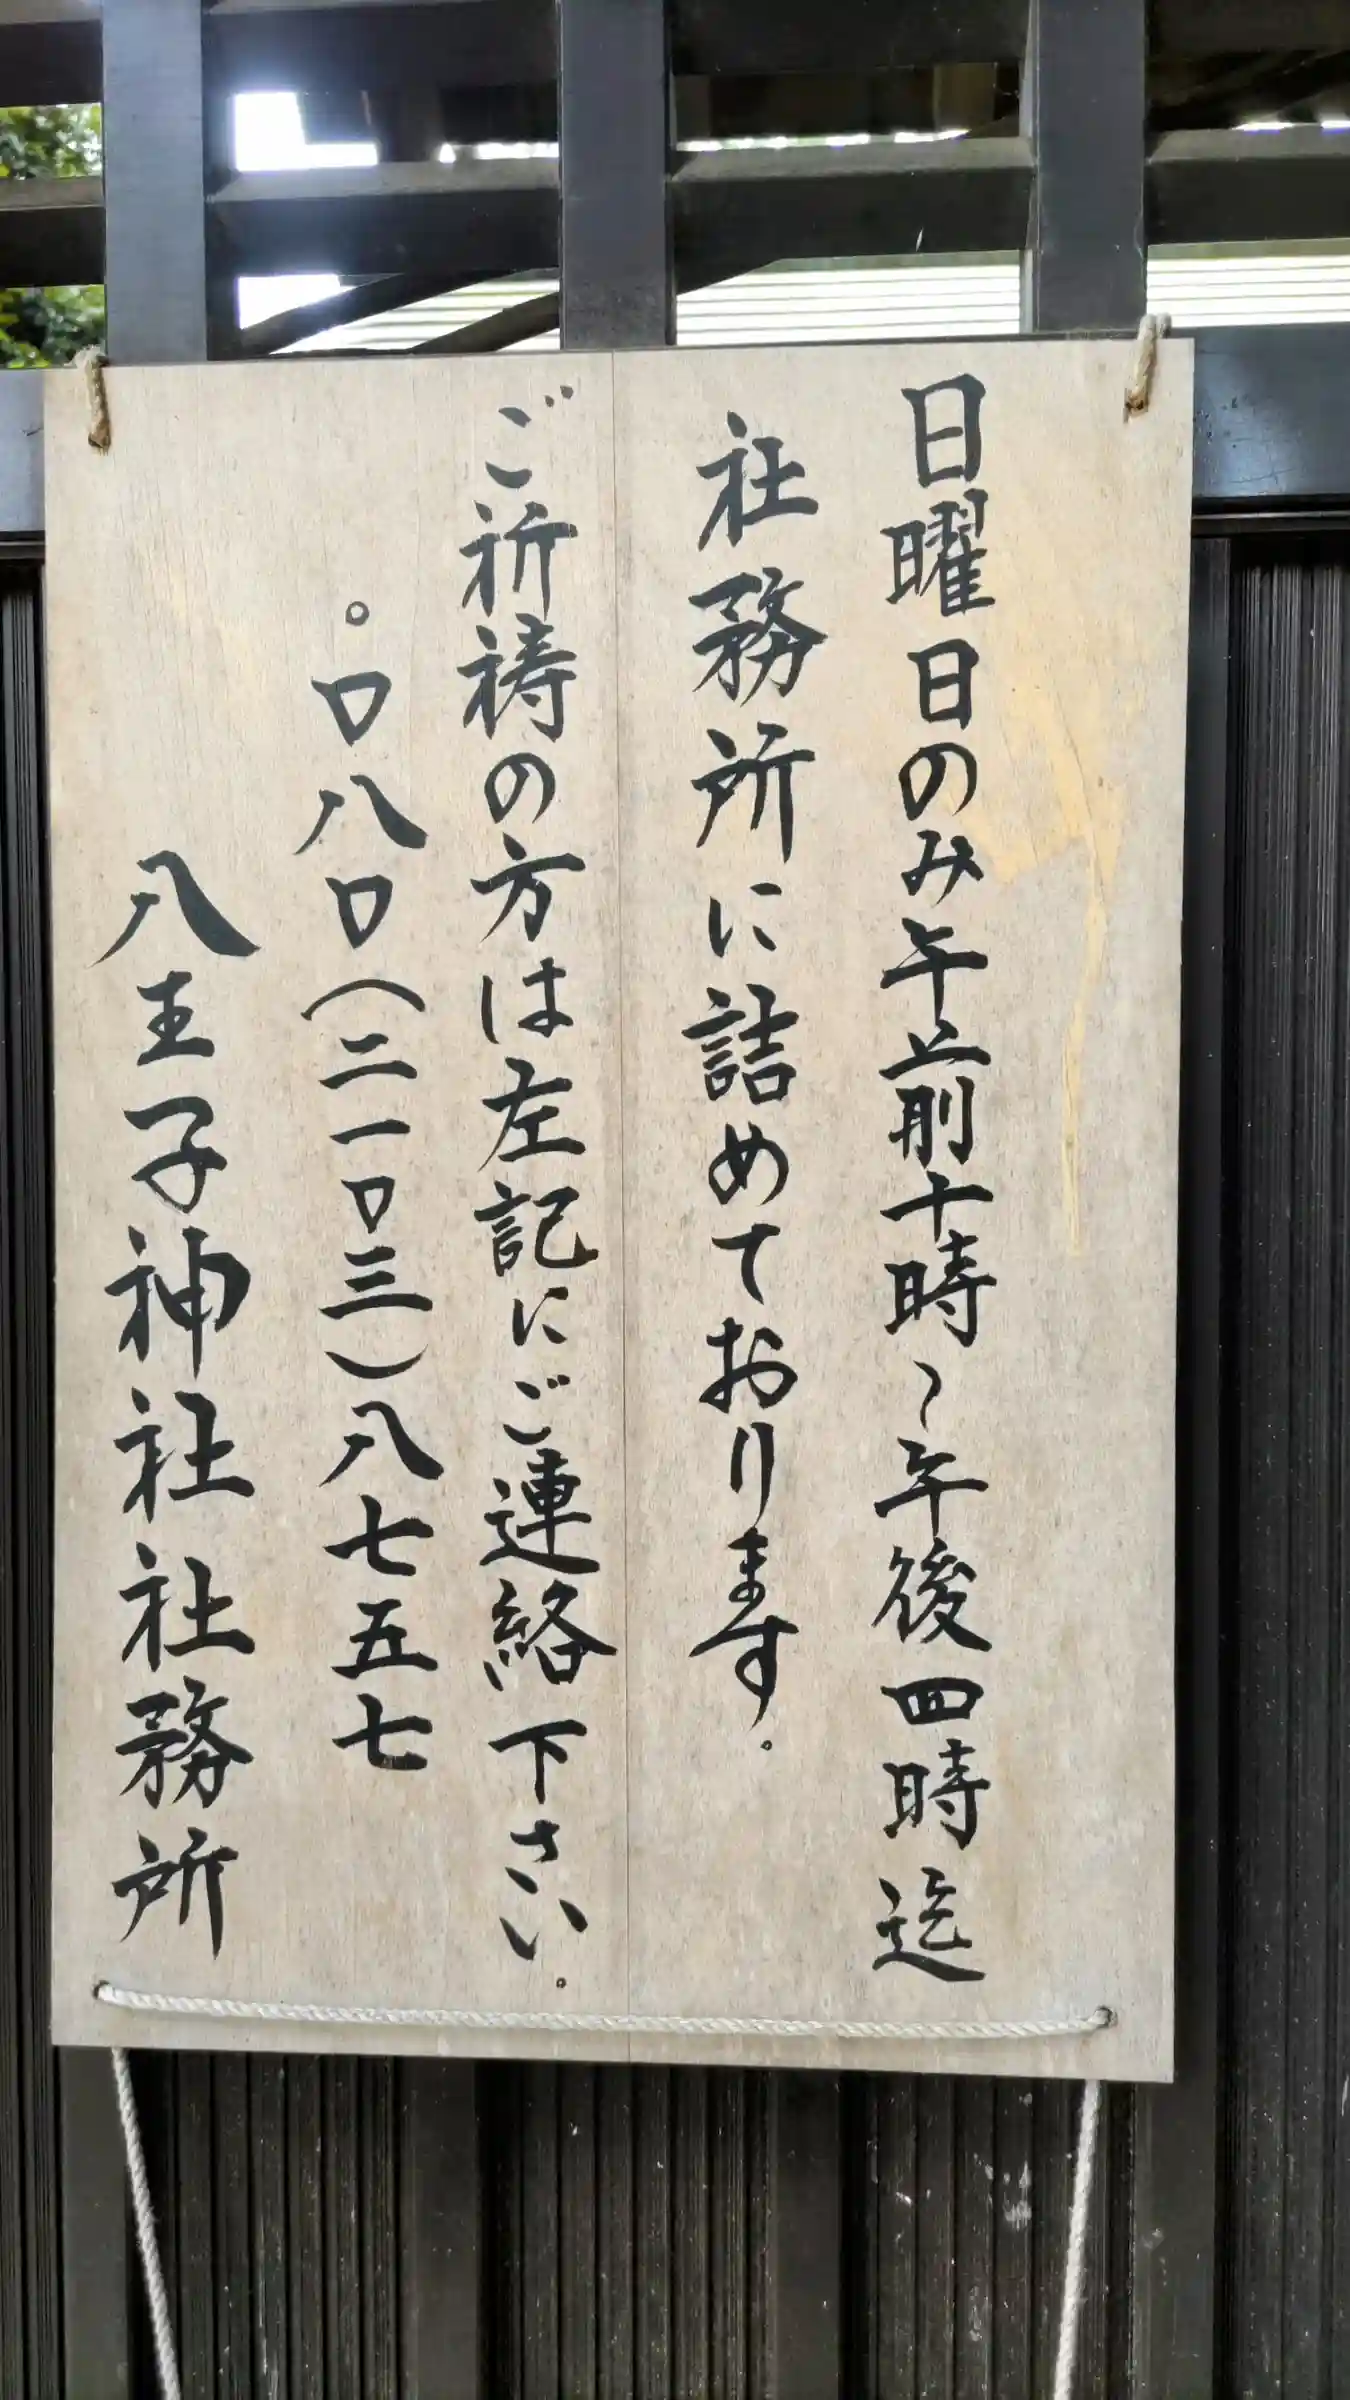 日曜日のみ午前十時〜午後四時迄
社務所に詰めております。
ご祈祷の方は左記にご連絡下さい。
。〇八〇(二一〇三)八七五七
八王子神社社務所